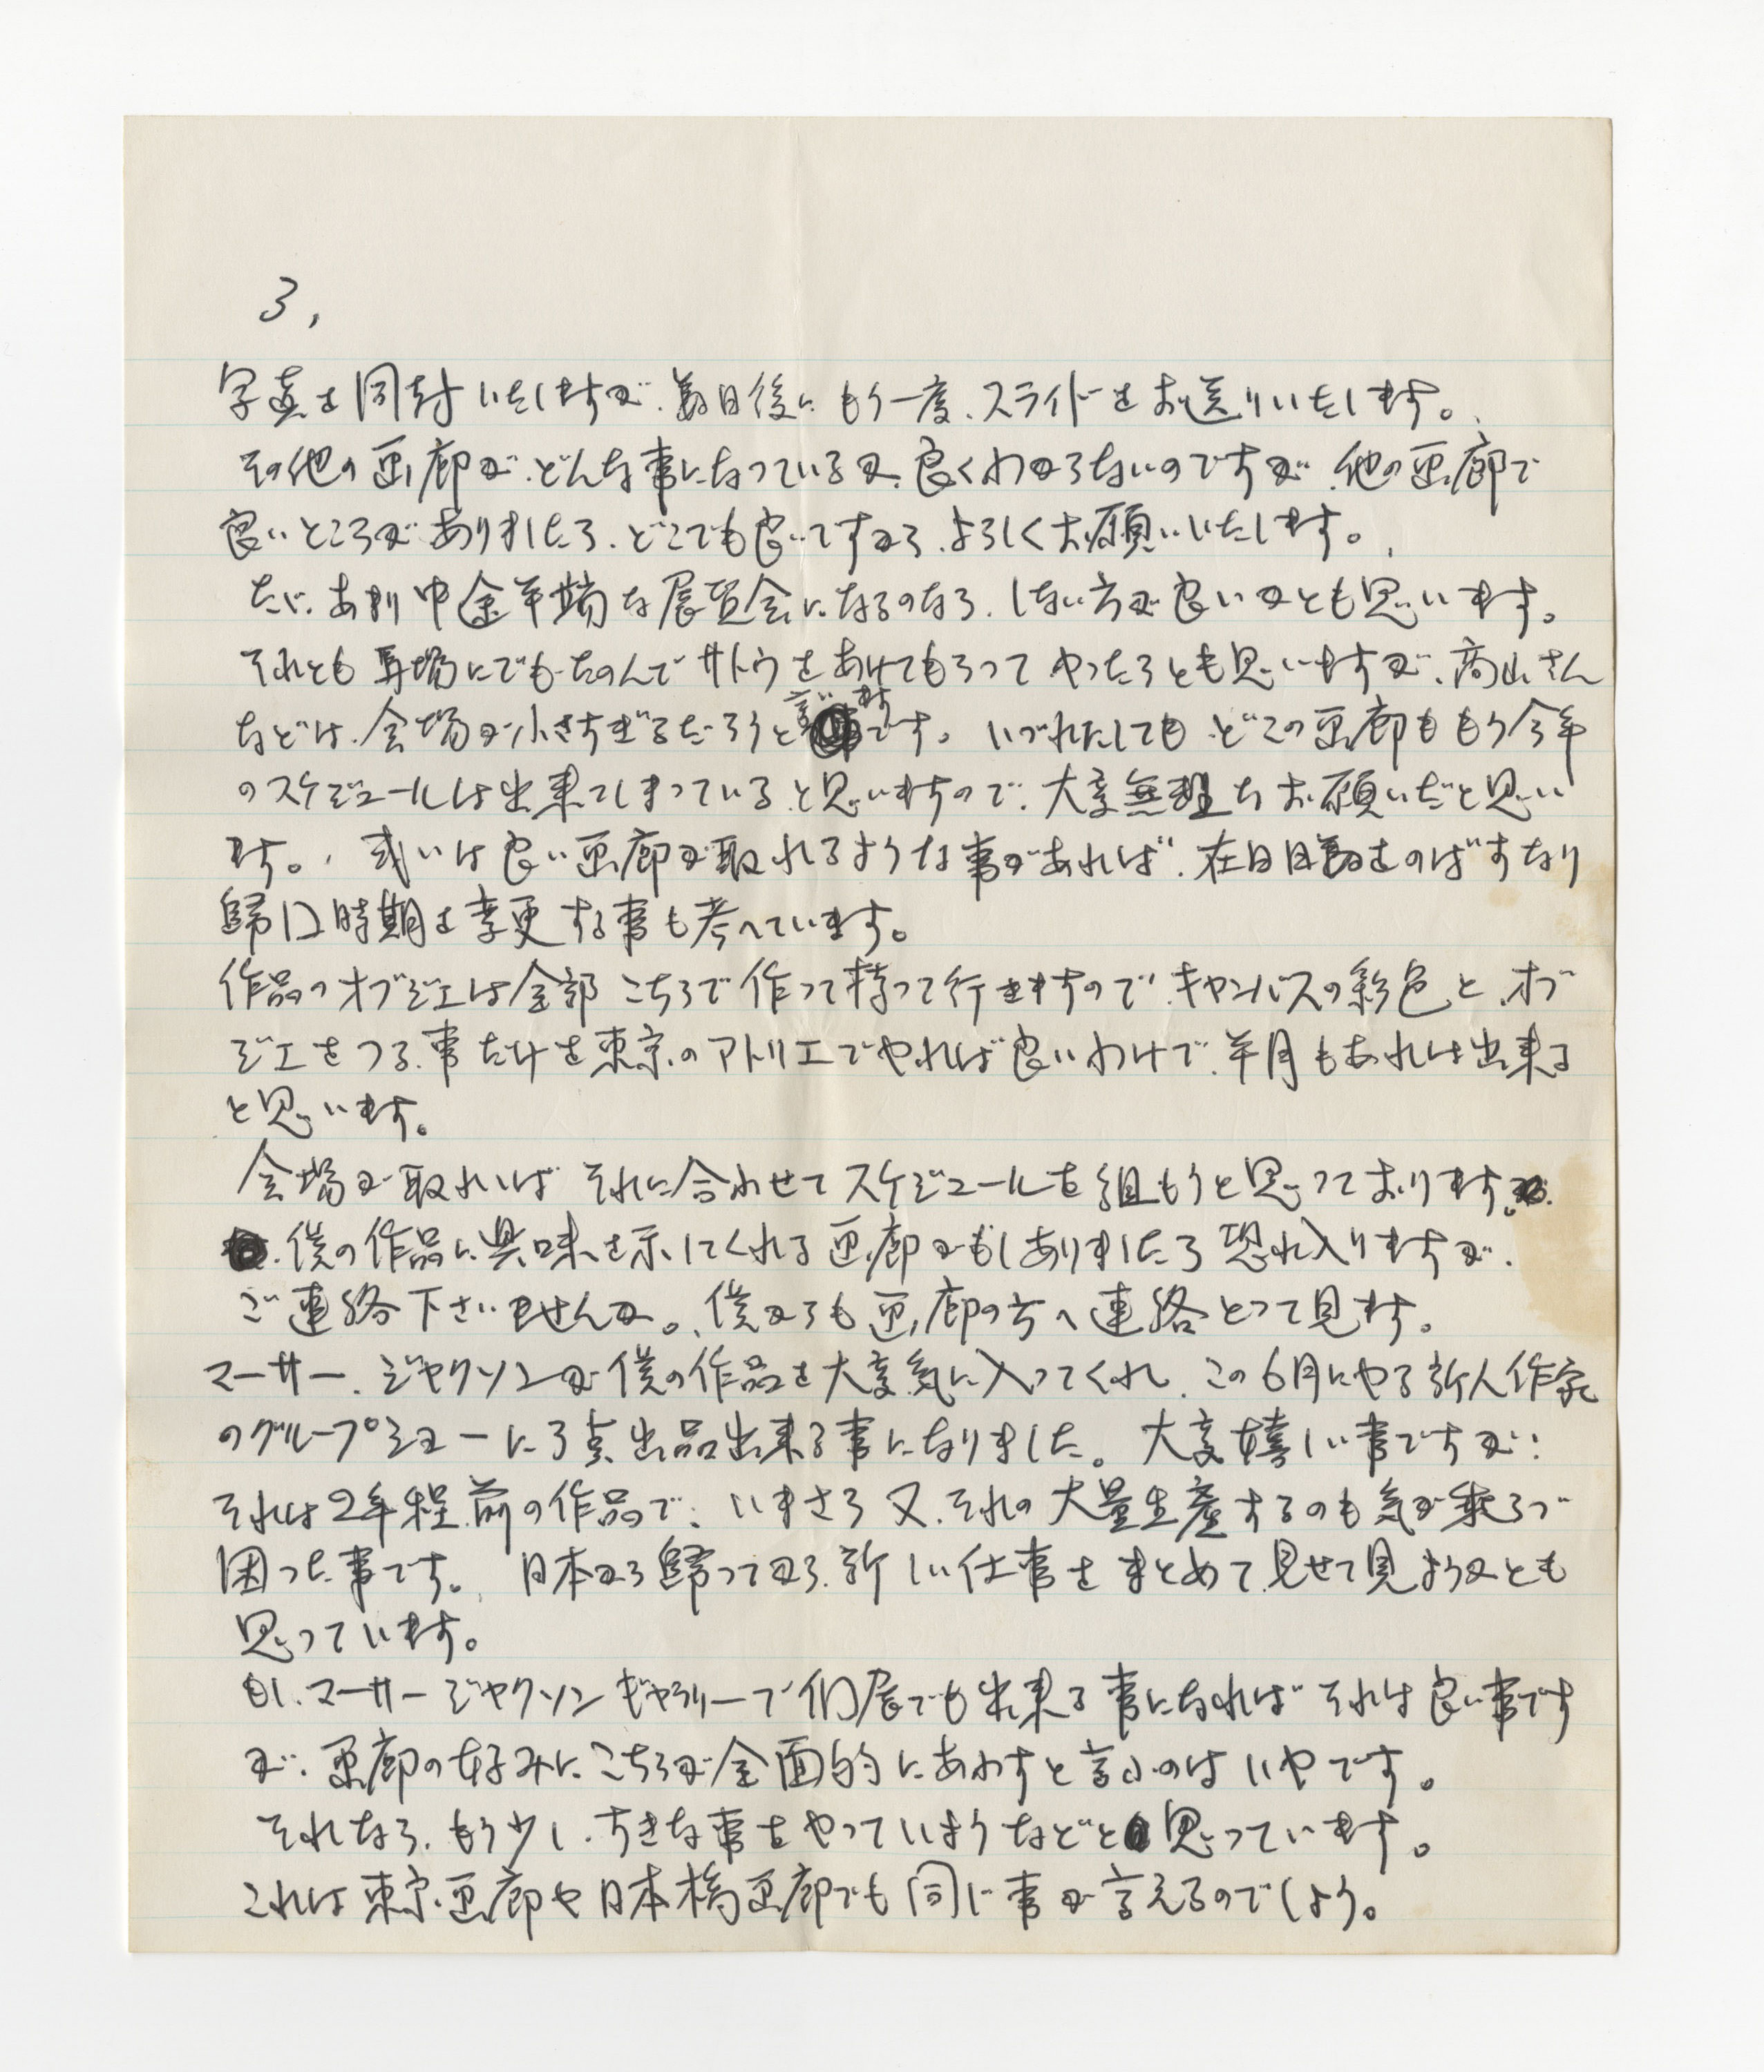 3,
写真を同封いたしますが、数日後にもう一度、スライドをお送りいたします。
その他の画廊が、どんな事になっているか、良くわからないのですが、他の画廊で
良いところがありましたら、どこでも良いですから、よろしくお願いいたします。
ただ、あまり中途半端な展覧会になるのなら、しない方が良いかとも思います。
それとも馬場にでもたのんでサトウをあけてもらってやったらとも思いますが、高山さん
などは、会場が小さすぎるだろうと言いますです。いづれにしてもどこの画廊ももう今年
のスケジュールは出来てしまっていると思いますので、大変無理なお願いだと思い
ます。或いは良い画廊が取れるような事があれば、在日日数をのばすなり
帰日時期を変更する事も考へています。
作品のオブジェは全部こちらで作って持って行きますので、キャンバスの彩色と、オブ
ジェをつる事だけを東京のアトリエでやれば良いわけで、半月もあれば出来る
と思います。
会場が取れればそれに合わせてスケジュールを組もうと思っております。
僕の作品に興味を示してくれる画廊がもしありましたら恐れ入りますが、
ご連絡下さいませんか。僕からも画廊の方へ連絡とって見ます。
マーサー、ジャクソンが僕の作品を大変気に入ってくれ、この6月にやる新人作家
のグループショーに3点出品出来る事になりました。大変嬉しい事ですが、
それは2年程前の作品で、いまさら又、それの大量生産するのも気が乗らづ
困った事です。日本から帰ってから、新しい仕事をまとめて見せて見ようかとも
思っています。
もし、マーサージャクソンギャラリーで個展でも出来る事になればそれは良い事です
が、画廊の好みにこちらが全面的にあわすと言ふのはいやです。
それなら、もう少し、すきな事をやっていようなどと思っています。
これは東京画廊や日本橋画廊でも同じ事が言えるのでしょう。